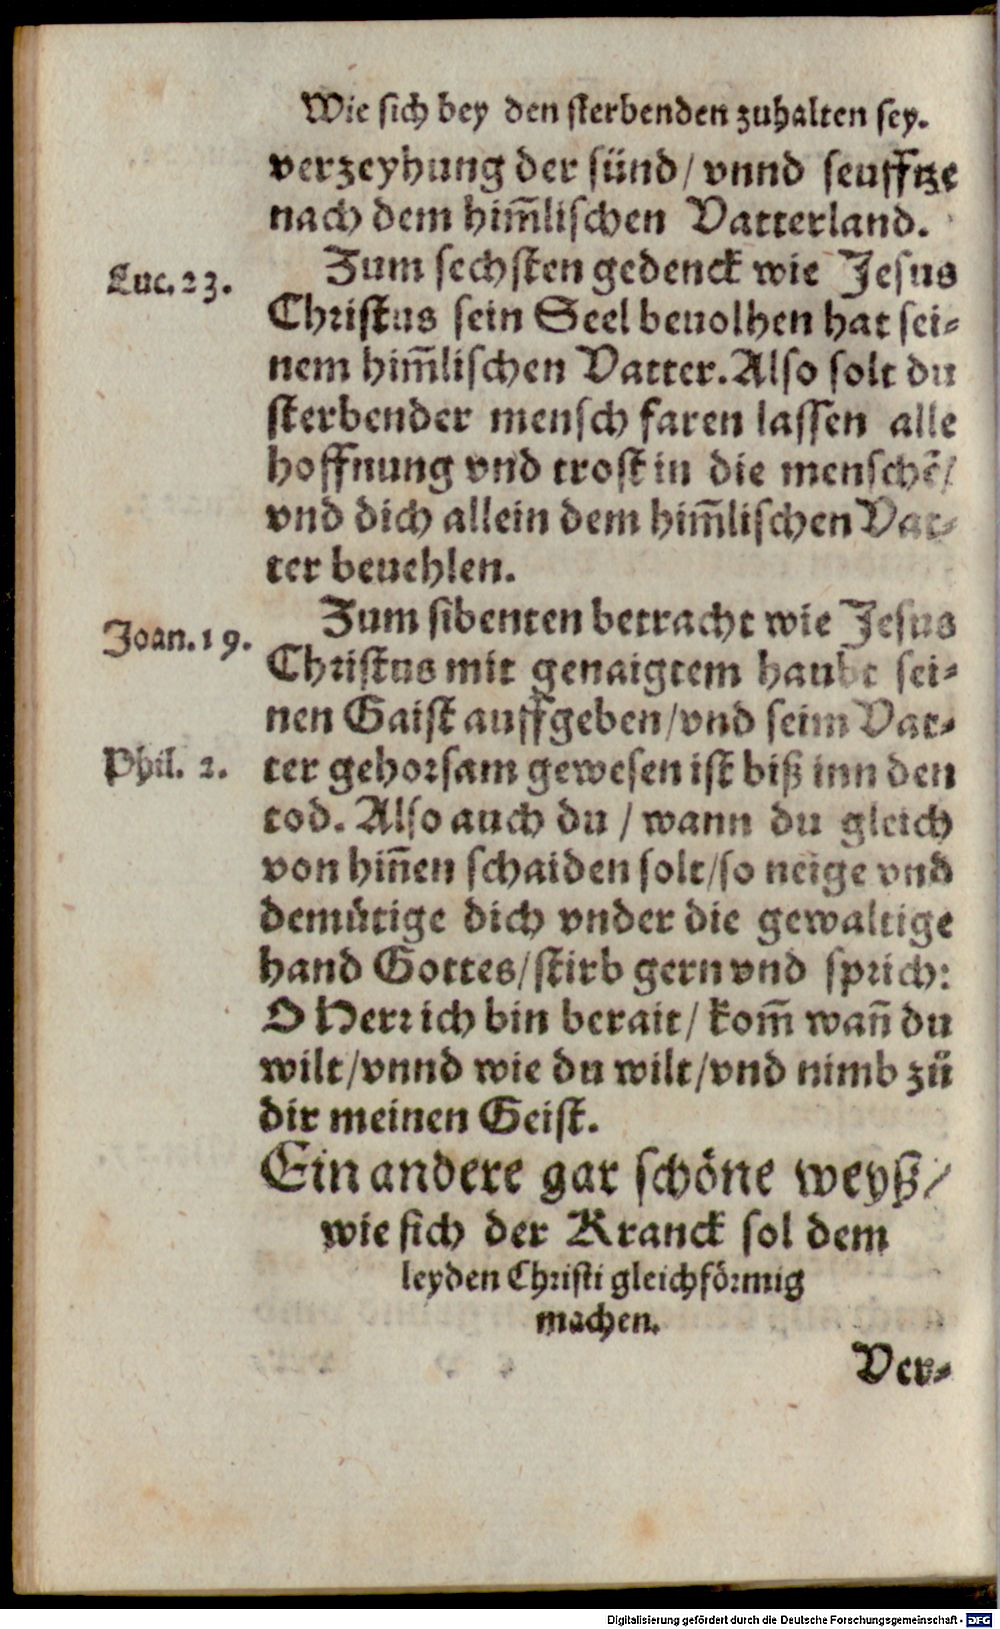 Wie sich bey den sterbenden zuhalten sey.
verzeyhung der sünd/ vnnd seufftze
nach dem him̃lischen Vatterland.
Luc. 23.
Zum sechsten gedenck wie Jesus
Christus sein Seel beuolhen hat sei-
nem him̃lischen Vatter. Also solt du
sterbender mensch faren lassen alle
hoffnung vnd trost in die menschẽ/
vnd dich allein dem him̃lischen Vat-
ter beuehlen.
Joan. 19.
Zum sibenten betracht wie Jesus
Christus mit genaigtem haubt sei-
nen Gaist auffgeben/vnd seim Vat-
Phil. 2.
ter gehorsam gewesen ist biß inn den
tod. Also auch du / wann du gleich
von hiñen schaiden solt/so neige vnd
demütige dich vnder die gewaltige
hand Gottes/stirb gern vnd sprich:
O Herr ich bin berait/ kom̃ wañ du
wilt/vnnd wie du wilt/vnd nimb zů
dir meinen Geist.
Ein andere gar schöne weyß/
wie sich der Kranck sol dem
leyden Christi gleichförmig
machen.
Ver-
Digitalisierung gefördert durch die Deutsche Forschungsgemeinschaft - DFG